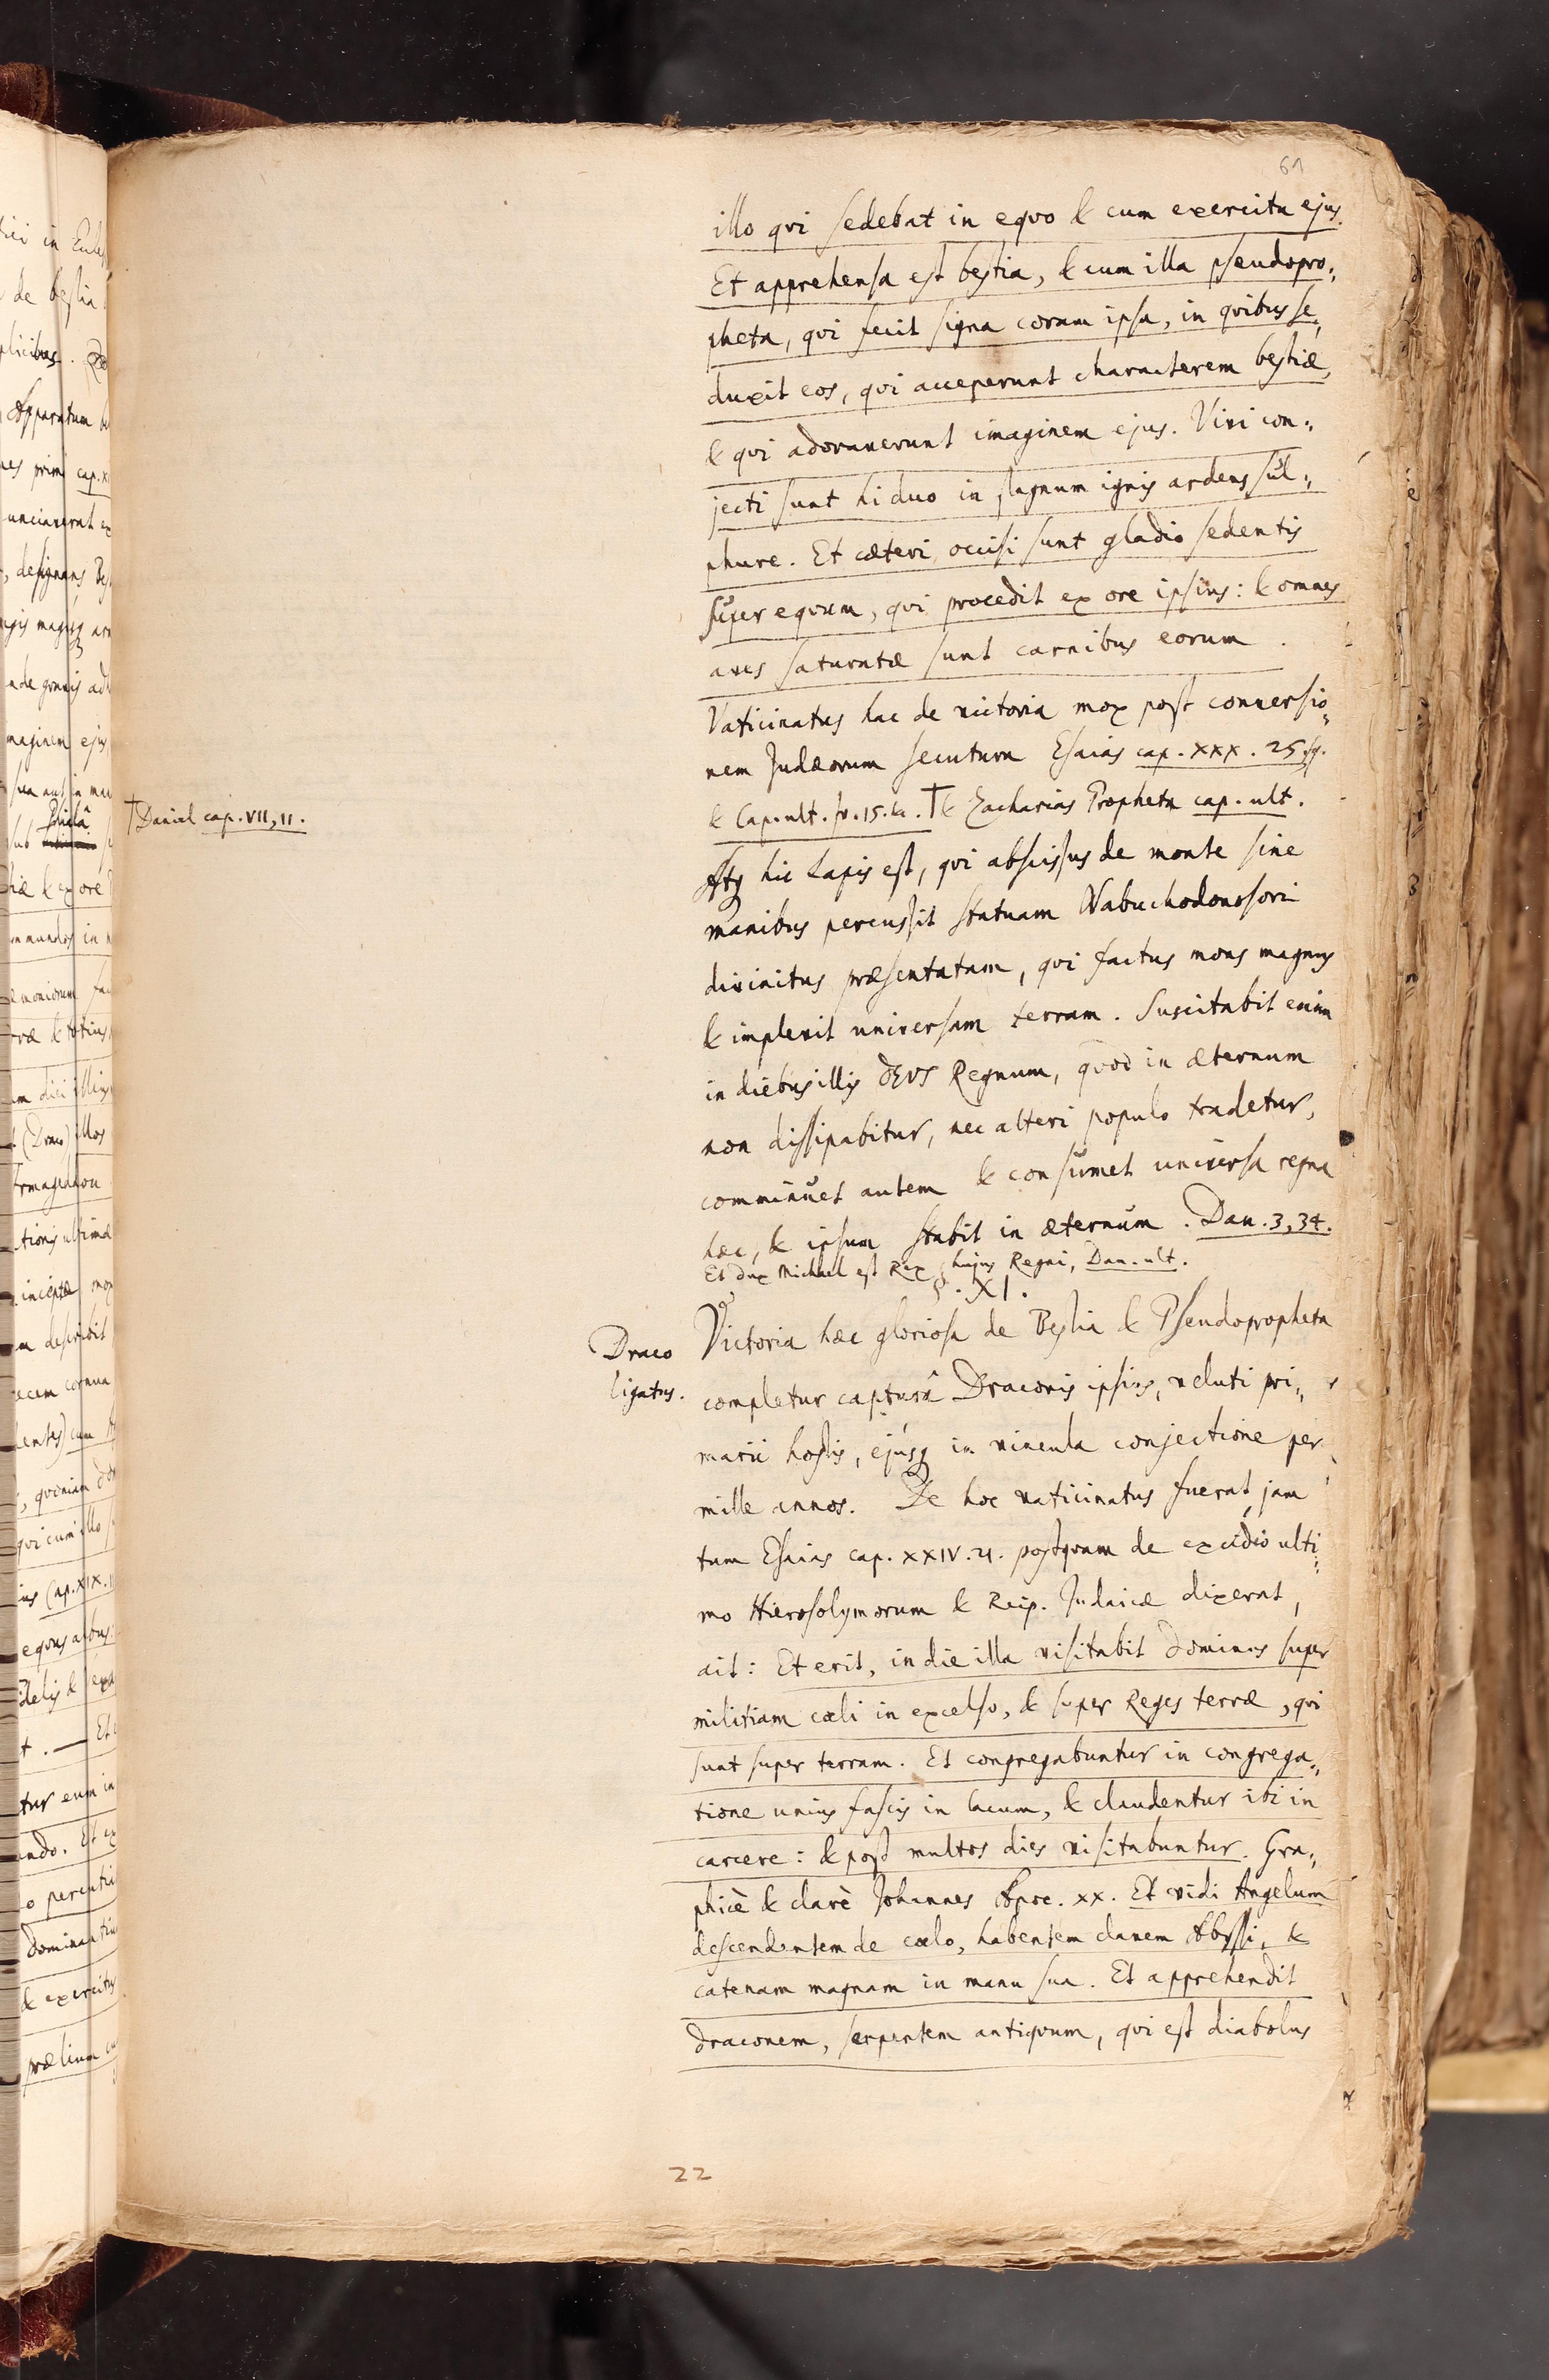 61
illo qvi sedebat in eqvo & cum exercitu ejus.
Et apprehensa est bestia, & cum illa pseudopro„
pheta, qvi fecit signa coram ipsa, in qvibus se„
duxit eos, qvi acceperunt characterem bestiæ,
& qvi adoraverunt imaginem ejus. Vivi con„
jecti sunt hi duo in stagnum ignis ardens sul„
phure. Et cæteri occisi sunt gladio sedentis
super eqvum, qvi procedit ex ore ipsius: & omnes
aves saturatæ sunt carnibus eorum.
Vaticinatus hac de victoria mox post conversio„
nem Judæorum secutura Esaias cap. XXX. 25. sq.
& Cap. ult. v. 15. &. † & Zacharias Propheta cap. ult.
† Daniel cap. VII, 11.
Atq hic Lapis est, qvi abscissus de monte sine
manibus percussit statuam Nabuchodonosori
divinitus præsentatam, qvi factus mons magnus
& implevit universam terram. Suscitabit enim
in diebus illis DEUS Regnum, qvod in æternum
non dissipabitur, nec alteri populo tradetur,
comminuet autem & consumet universa regna
hæc, & ipsum stabit in æternum. Dan. 3, 34.
Et dux Michael est Rex hujus Regni, Dan. ult.
§. XI.
Draco
ligatus.
Victoria hæc gloriosa de Bestia & Pseudopropheta
completur capturâ Draconis ipsius, veluti pri„
marii hostis, ejusq in vincula conjectione per
mille annos. De hoc vaticinatus fuerat jam
tum Esaias cap. XXIV. 21. postqvam de excidio ulti„
mo Hierosolymorum & Reip. Judaicæ dixerat,
ait: Et erit, in die illa visitabit Dominus super
militiam cæli in excelso, & super Reges terræ, qvi
sunt super terram. Et congregabuntur in congrega„
tione unius fascis in lacum, & claudentur ibi in
carcere: & post multos dies visitabuntur. Gra„
phicè & clarè Johannes Apoc. XX. Et vidi Angelum
descendentem de cælo, habentem clavem Abyssi, &
catenam magnam in manu sua. Et apprehendit
draconem, serpentem antiqvum, qvi est diabolus
22